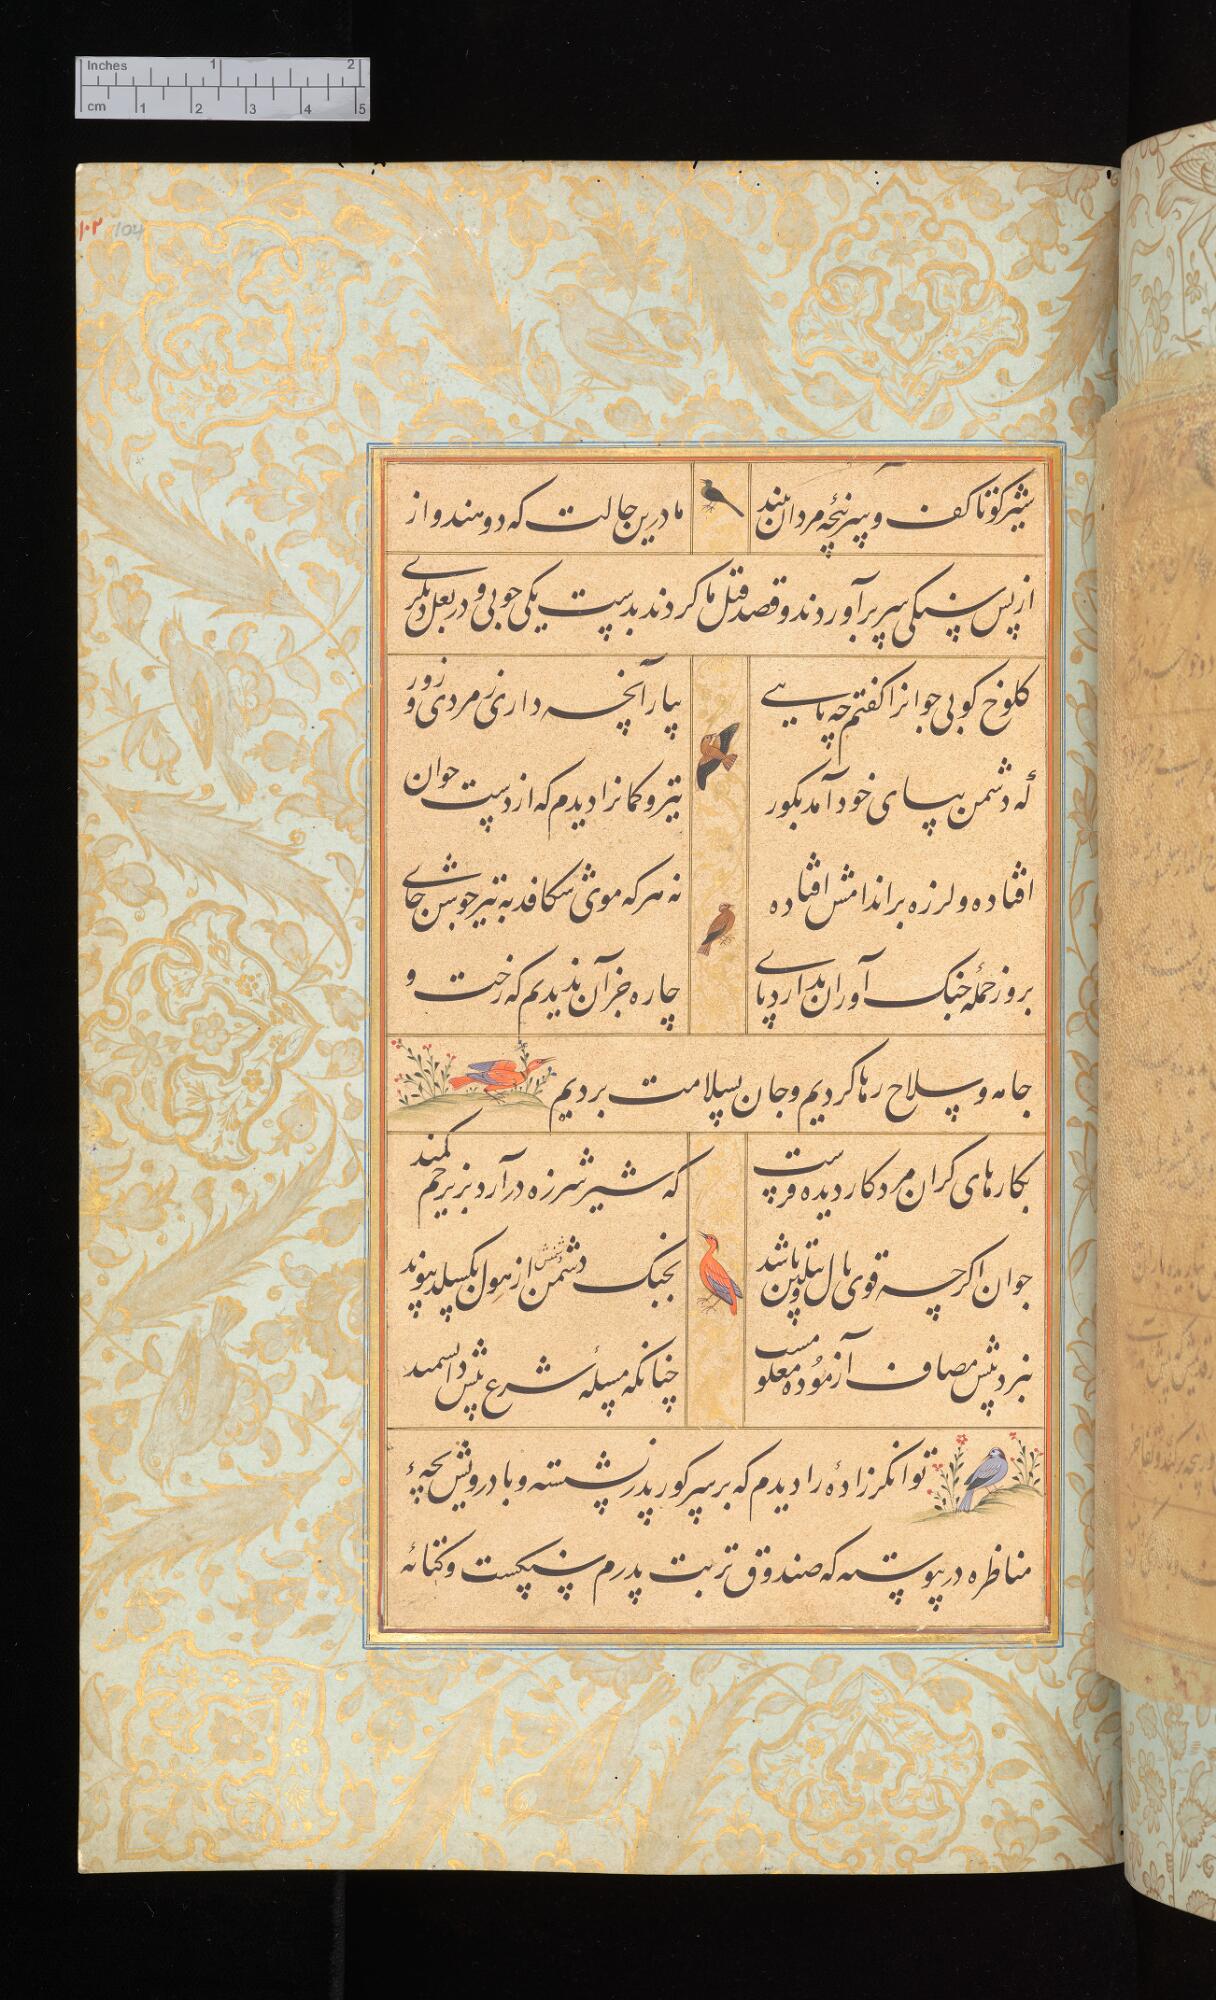 شیر کو تا کف و سر پنچه مردان بیند
ما درین حالت که دو هندو از
از پس سنگی سر بر آوردند و قصد قتل ما کردند بدست یکی چوبی و در بغل دیگری
کلوخ کوبی جوانرا گفتم چه پایی
بیار آنچه داری ز مردی و زور
که دشمن بپای خود آمد بگور
تیر و کمانرا دیدم که از دست جوان
افتاده و لرزه بر اندامش افتاده
نه هر که موی شکافد به تیر جوشن خای
بروز حمله جنگ آوران بدارد پای
چاره جز آن ندیدیم که رخت و
جامه و سلاح رها کردیم و جان بسلامت بردیم
بکارهای گران مرد کار دیده فرست
که شیر شرزه در آرد بزیر خم کمند
جوان اگر چه قوی یال و پیلتن باشد
بجنگ دشمنش از هول بگسلد پیوند
نبرد پیش مصاف آزموده معلومست
چنانکه مسئله شرع پیش دانشمند
توانگر زاده را دیدم که بر سر گور پدر نشسته و با درویش بچه
مناظره در پیوسته که صندوق تربت پدرم سنگیست و کتابه
۱۰۲ 104
Inches 1 2
cm 1 2 3 4 5